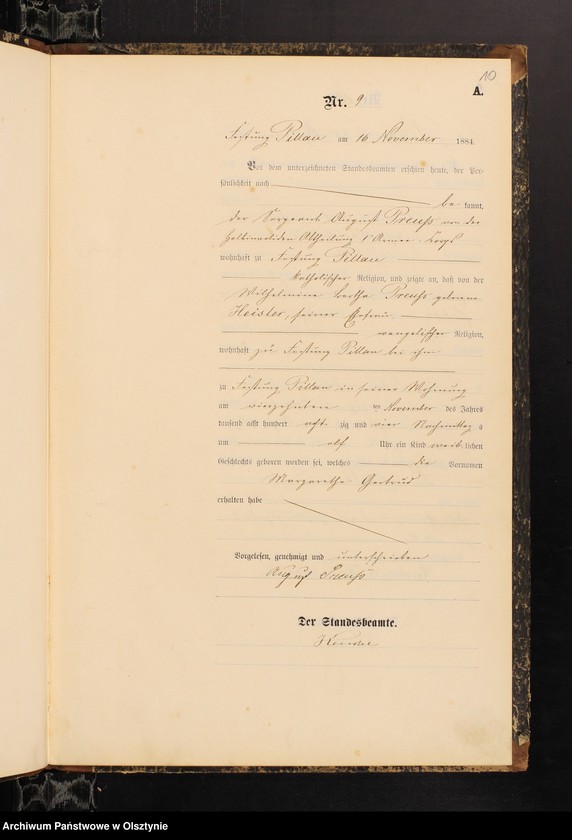 10
A.
Nr. 9
Festung Pillau am 16 November 1884
Vor dem unterzeichneten Standesbeamten erschien heute, der Per-
sönlichkeit nach
be kannt,
der Sergeant August Preuß von der
Halbinvaliden Abtheilung 1 Armee Korps
wohnhaft zu Festung Pillau
katholischer Religion, und zeigte an, daß von der
Wilhelmine Bertha Preuß geborene
Heister, seiner Ehefrau
evangelischer Religion,
wohnhaft zu Festung Pillau bei ihm
zu Festung Pillau in seiner Wohnung
am vierzehnten ten November des Jahres
tausend acht hundert acht zig und vier Nachmittag s
um elf Uhr ein Kind weib lichen
Geschlechts geboren worden sei, welches die Vornamen
Margarethe Gertrud
erhalten habe
Vorgelesen, genehmigt und unterschrieben
August Preuß
Der Standesbeamte.
Archiwum Państwowe w Olsztynie